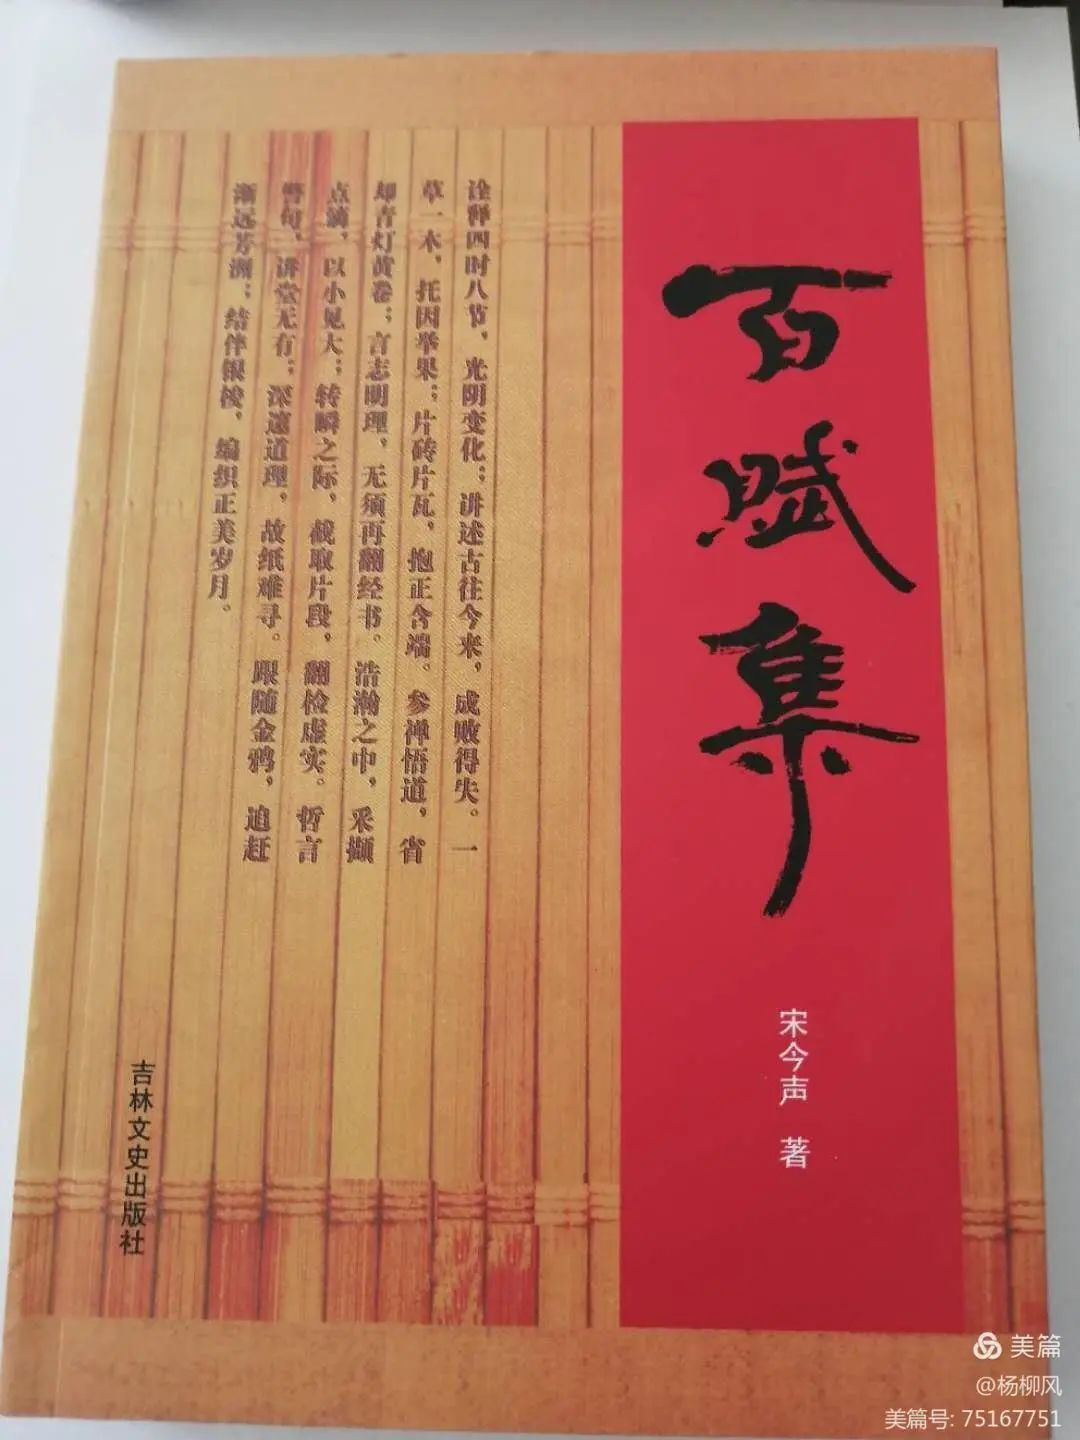 百赋集
宋今声 著
诠释四时八节，光阴变化；讲述古往今来，成败得失。一
草一木，托因举果；片砖片瓦，抱正含端。参禅悟道，省
却青灯黄卷；言志明理，无须再翻经书。浩瀚之中，采撷
点滴，以小见大；转瞬之际，截取片段，翻检虚实。哲言
警句，讲堂无有；深邃道理，故纸难寻。跟随金鸦，追赶
渐远芳洲；结伴银梭，编织正美岁月。
吉林文史出版社
美篇
@杨柳风
美篇号: 75167751